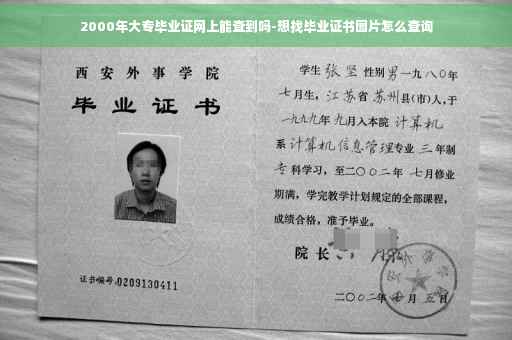 2000年大专毕业证网上能查到吗-想找毕业证书图片怎么查询
西安外事学院
毕业证书
证书编号:0209130411
学生 张坚 性别男一九八〇年
七月生，江苏省苏州县(市)人,于
一九九九年九月入本院 计算机
系计算机信息管理专业 三 年制
专科学习，至二〇〇二年 七月修业
期满，学完教学计划规定的全部课程，
成绩合格，准予毕业。
院长
二〇〇二年 月五日